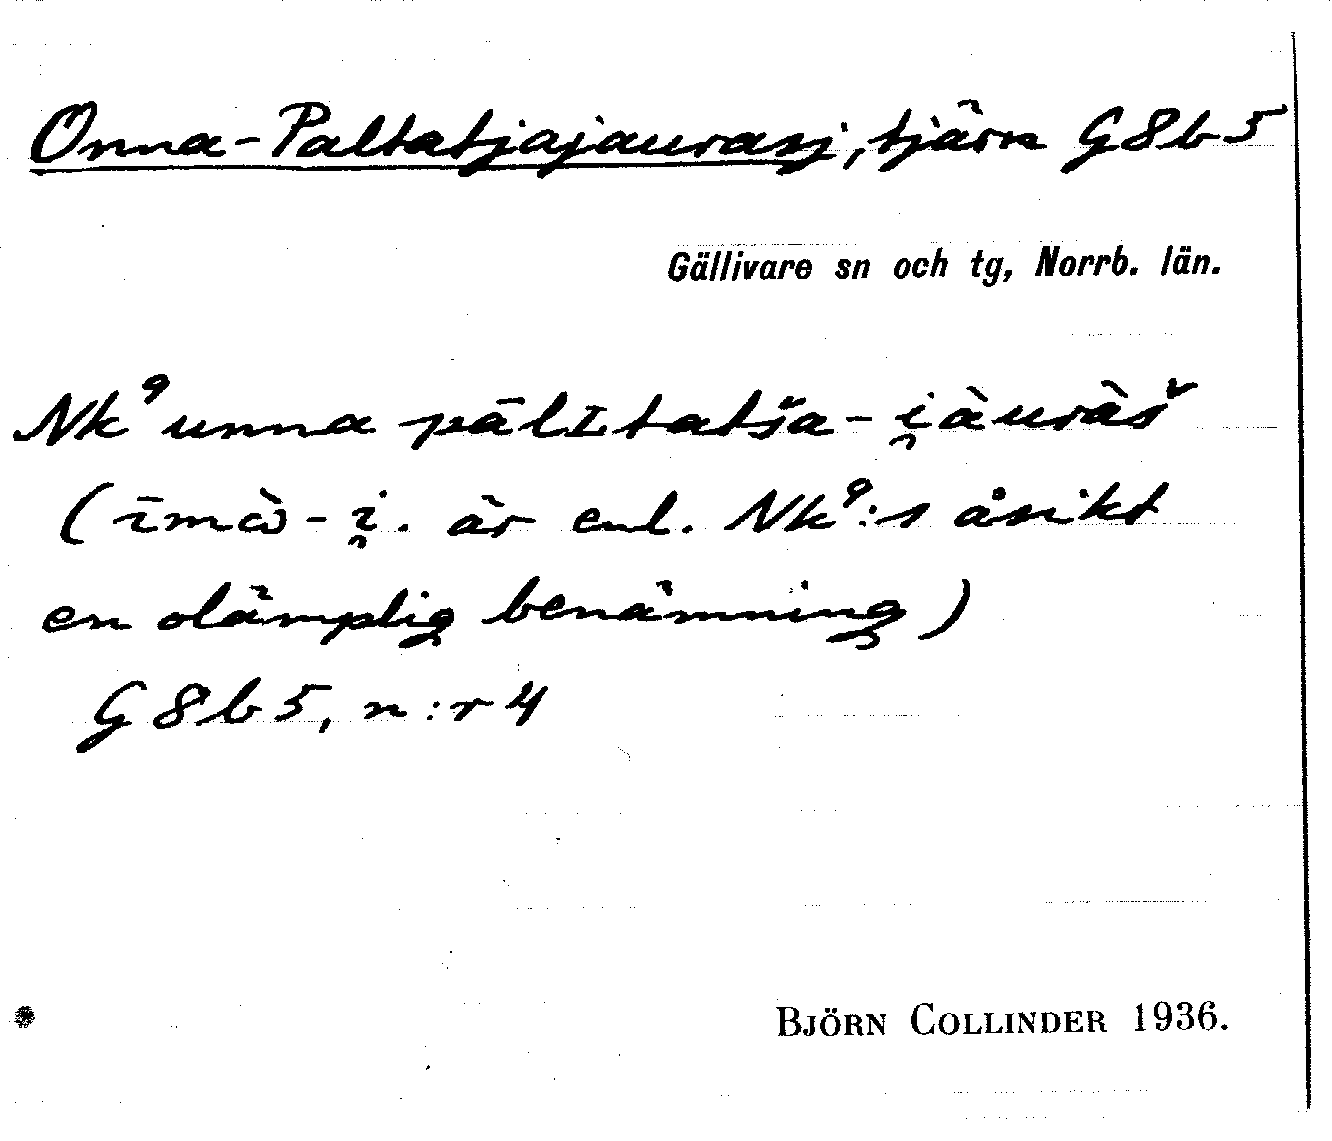 Onna-Paltatjajaurasj, tjärn G8b5
Gällivare sn och tg, Norrb. län.
Nk⁹ unna pālɪtatša-i̯àuràš
(īmὼ-i̯. är enl. Nk⁹:s åsikt
en olämplig benämning)
G8b5, n:r 4
BJÖRN COLLINDER 1936.